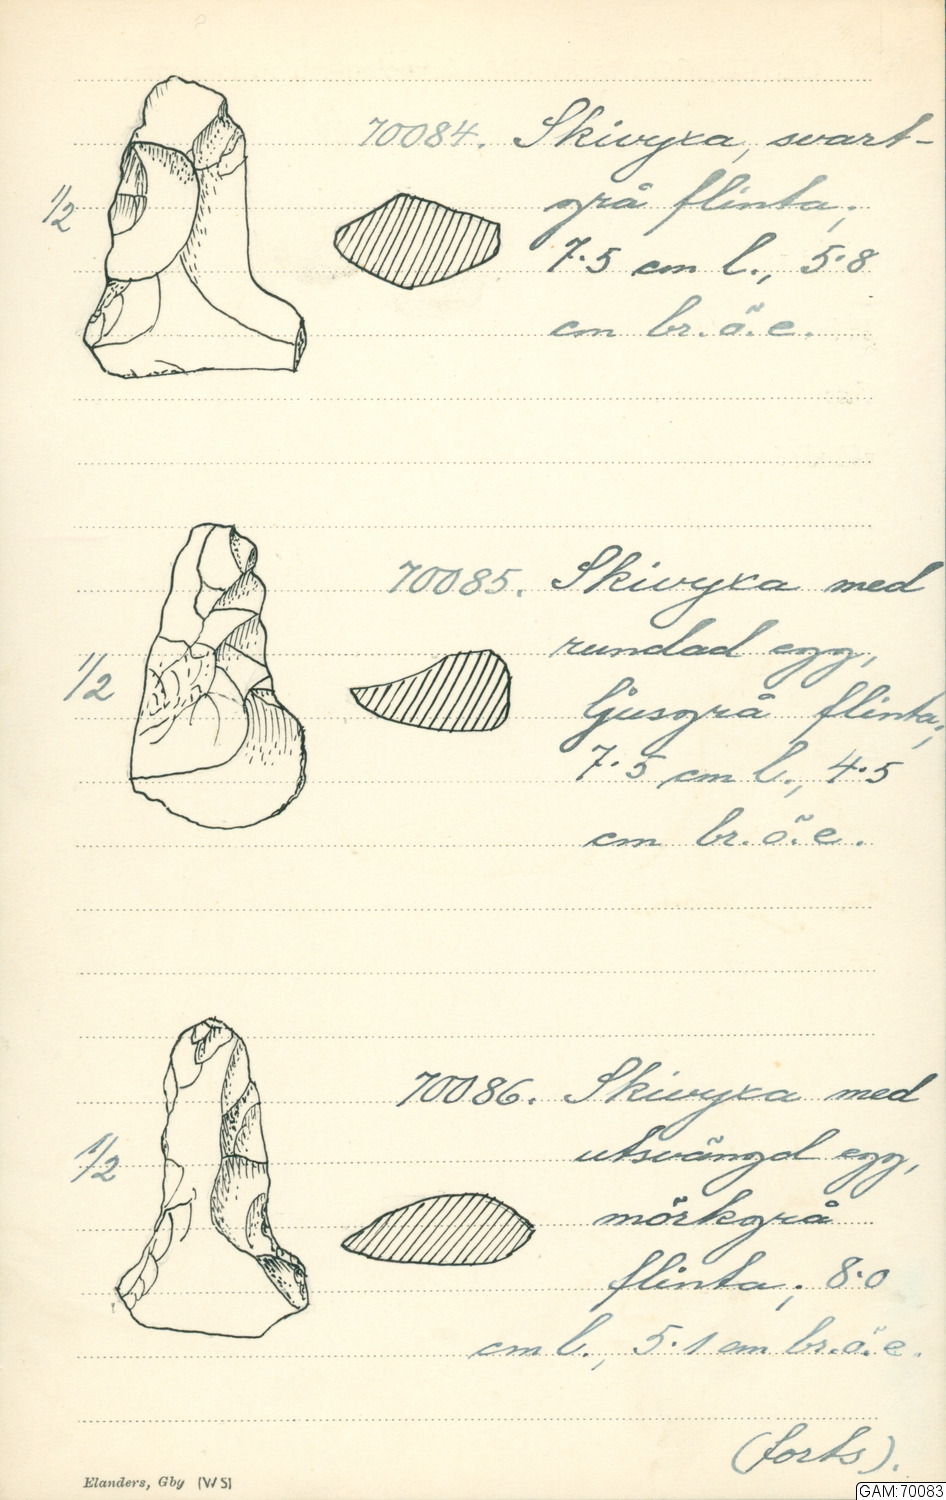 70084. Skivyxa, svart-
1/2
grå flinta;
7.5 cm l., 5.8
cm br. ö. e.
70085. Skivyxa med
1/2
rundad egg,
ljusgrå flinta;
7.5 cm l., 4.5
cm br. ö. e.
70086. Skivyxa med
1/2
utsvängd egg,
mörkgrå
flinta; 8.0
cm l., 5.1 cm br. ö. e.
(forts).
Elanders, Gby (WS)
GAM:70083